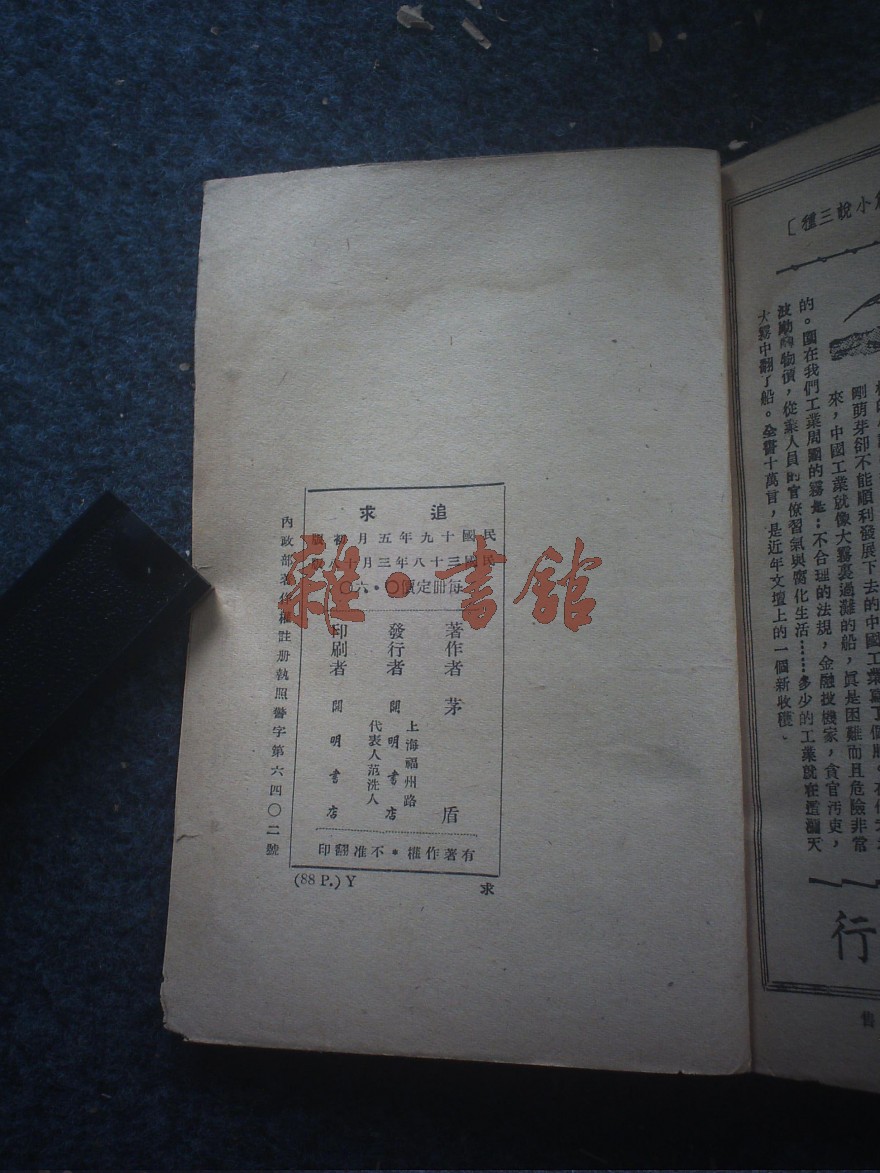 小說三種〕
剛萌芽卻不能順利發展下去的中國工業寫了個
來，中國工業就像大霧裏過灘的船，眞是困難而且危險非常
的。圍在我們工業周圍的霧是：不合理的法規，金融投機家，貪官汚吏，
波動的物價，從業人員的官僚習氣與腐化生活……多少的工業就在這瀰天
大霧中翻了船。全書十萬言，是近年文壇上的一個新收穫。
行
售
追求
民國十九年五月初版
民國三十八年三月十版
每冊定價〇・六〇
著作者 茅盾
發行者 開明書店
上海福州路
代表人范洗人
印刷者 開明書店
有著作權＊不准翻印
內政部著作權註册執照警字第六四〇二號
(88 P.) Y
求
雜・書館